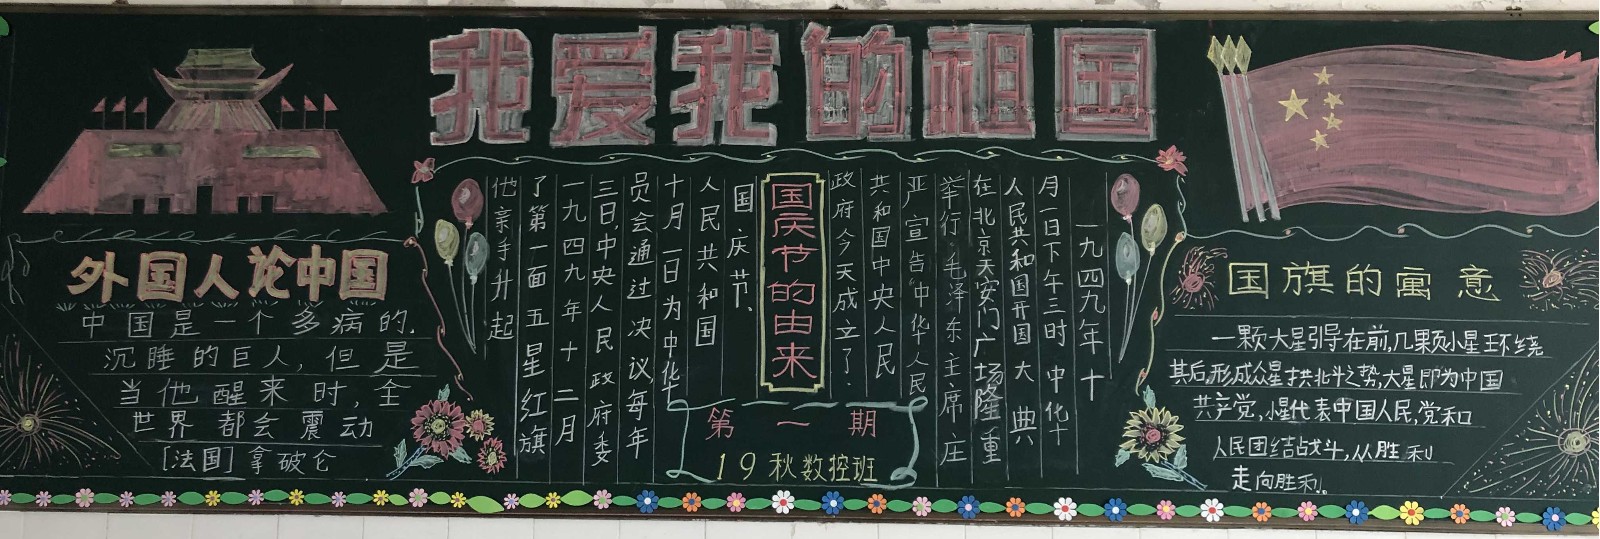 我爱我的祖国
外国人论中国
中国是一个多病的.
沉睡的巨人,但是
当他醒来时,全
世界都会震动
[法国]拿破仑
国庆节的由来
一九四九年十
月一日下午三时中华
人民共和国开国大典
在北京天安门广场隆重
举行,毛泽东主席庄
严宣告"中华人民
共和国中央人民
政府今天成立了.
他亲手升起
了第一面五星红旗
一九四九年十二月
三日,中央人民政府委
员会通过决议,每年
十月一日为中华
人民共和国
国庆节、
第一期
19秋数控班
国旗的寓意
一颗大星引导在前,几颗小星环绕
其后,形成众星拱北斗之势,大星即为中国
共产党,小星代表中国人民,党和
人民团结战斗,从胜利
走向胜利。